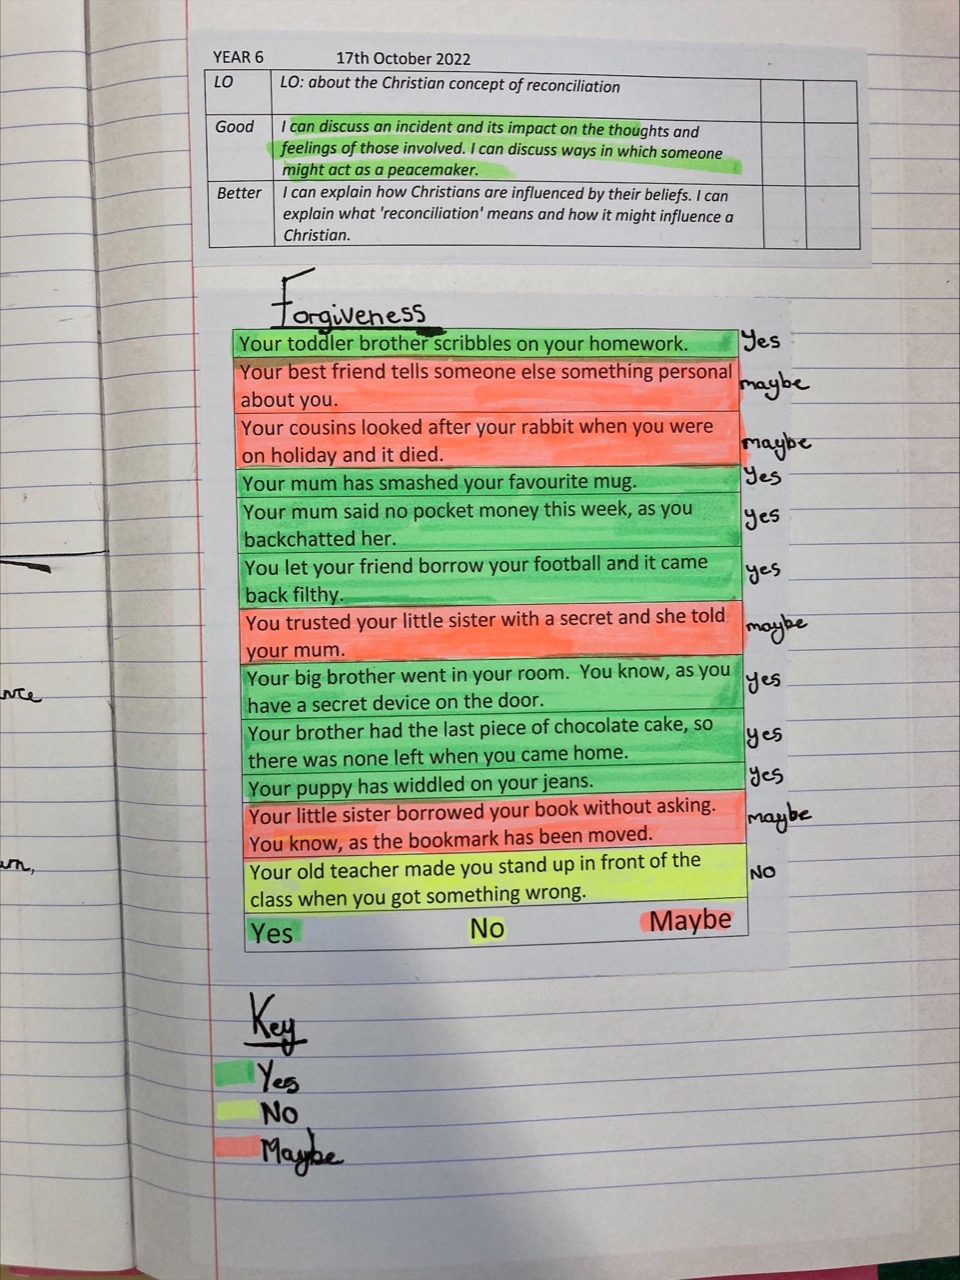 YEAR 6 17th October 2022
LO LO: about the Christian concept of reconciliation
Good I can discuss an incident and its impact on the thoughts and
feelings of those involved. I can discuss ways in which someone
might act as a peacemaker.
Better I can explain how Christians are influenced by their beliefs. I can
explain what 'reconciliation' means and how it might influence a
Christian.
Forgiveness
Your toddler brother scribbles on your homework. Yes
Your best friend tells someone else something personal maybe
about you.
Your cousins looked after your rabbit when you were
on holiday and it died. maybe
Your mum has smashed your favourite mug. Yes
Your mum said no pocket money this week, as you yes
backchatted her.
You let your friend borrow your football and it came yes
back filthy.
You trusted your little sister with a secret and she told maybe
your mum.
Your big brother went in your room. You know, as you yes
have a secret device on the door.
Your brother had the last piece of chocolate cake, so yes
there was none left when you came home.
Your puppy has widdled on your jeans. yes
Your little sister borrowed your book without asking. maybe
You know, as the bookmark has been moved.
Your old teacher made you stand up in front of the NO
class when you got something wrong.
Yes No Maybe
Key
Yes
No
Maybe